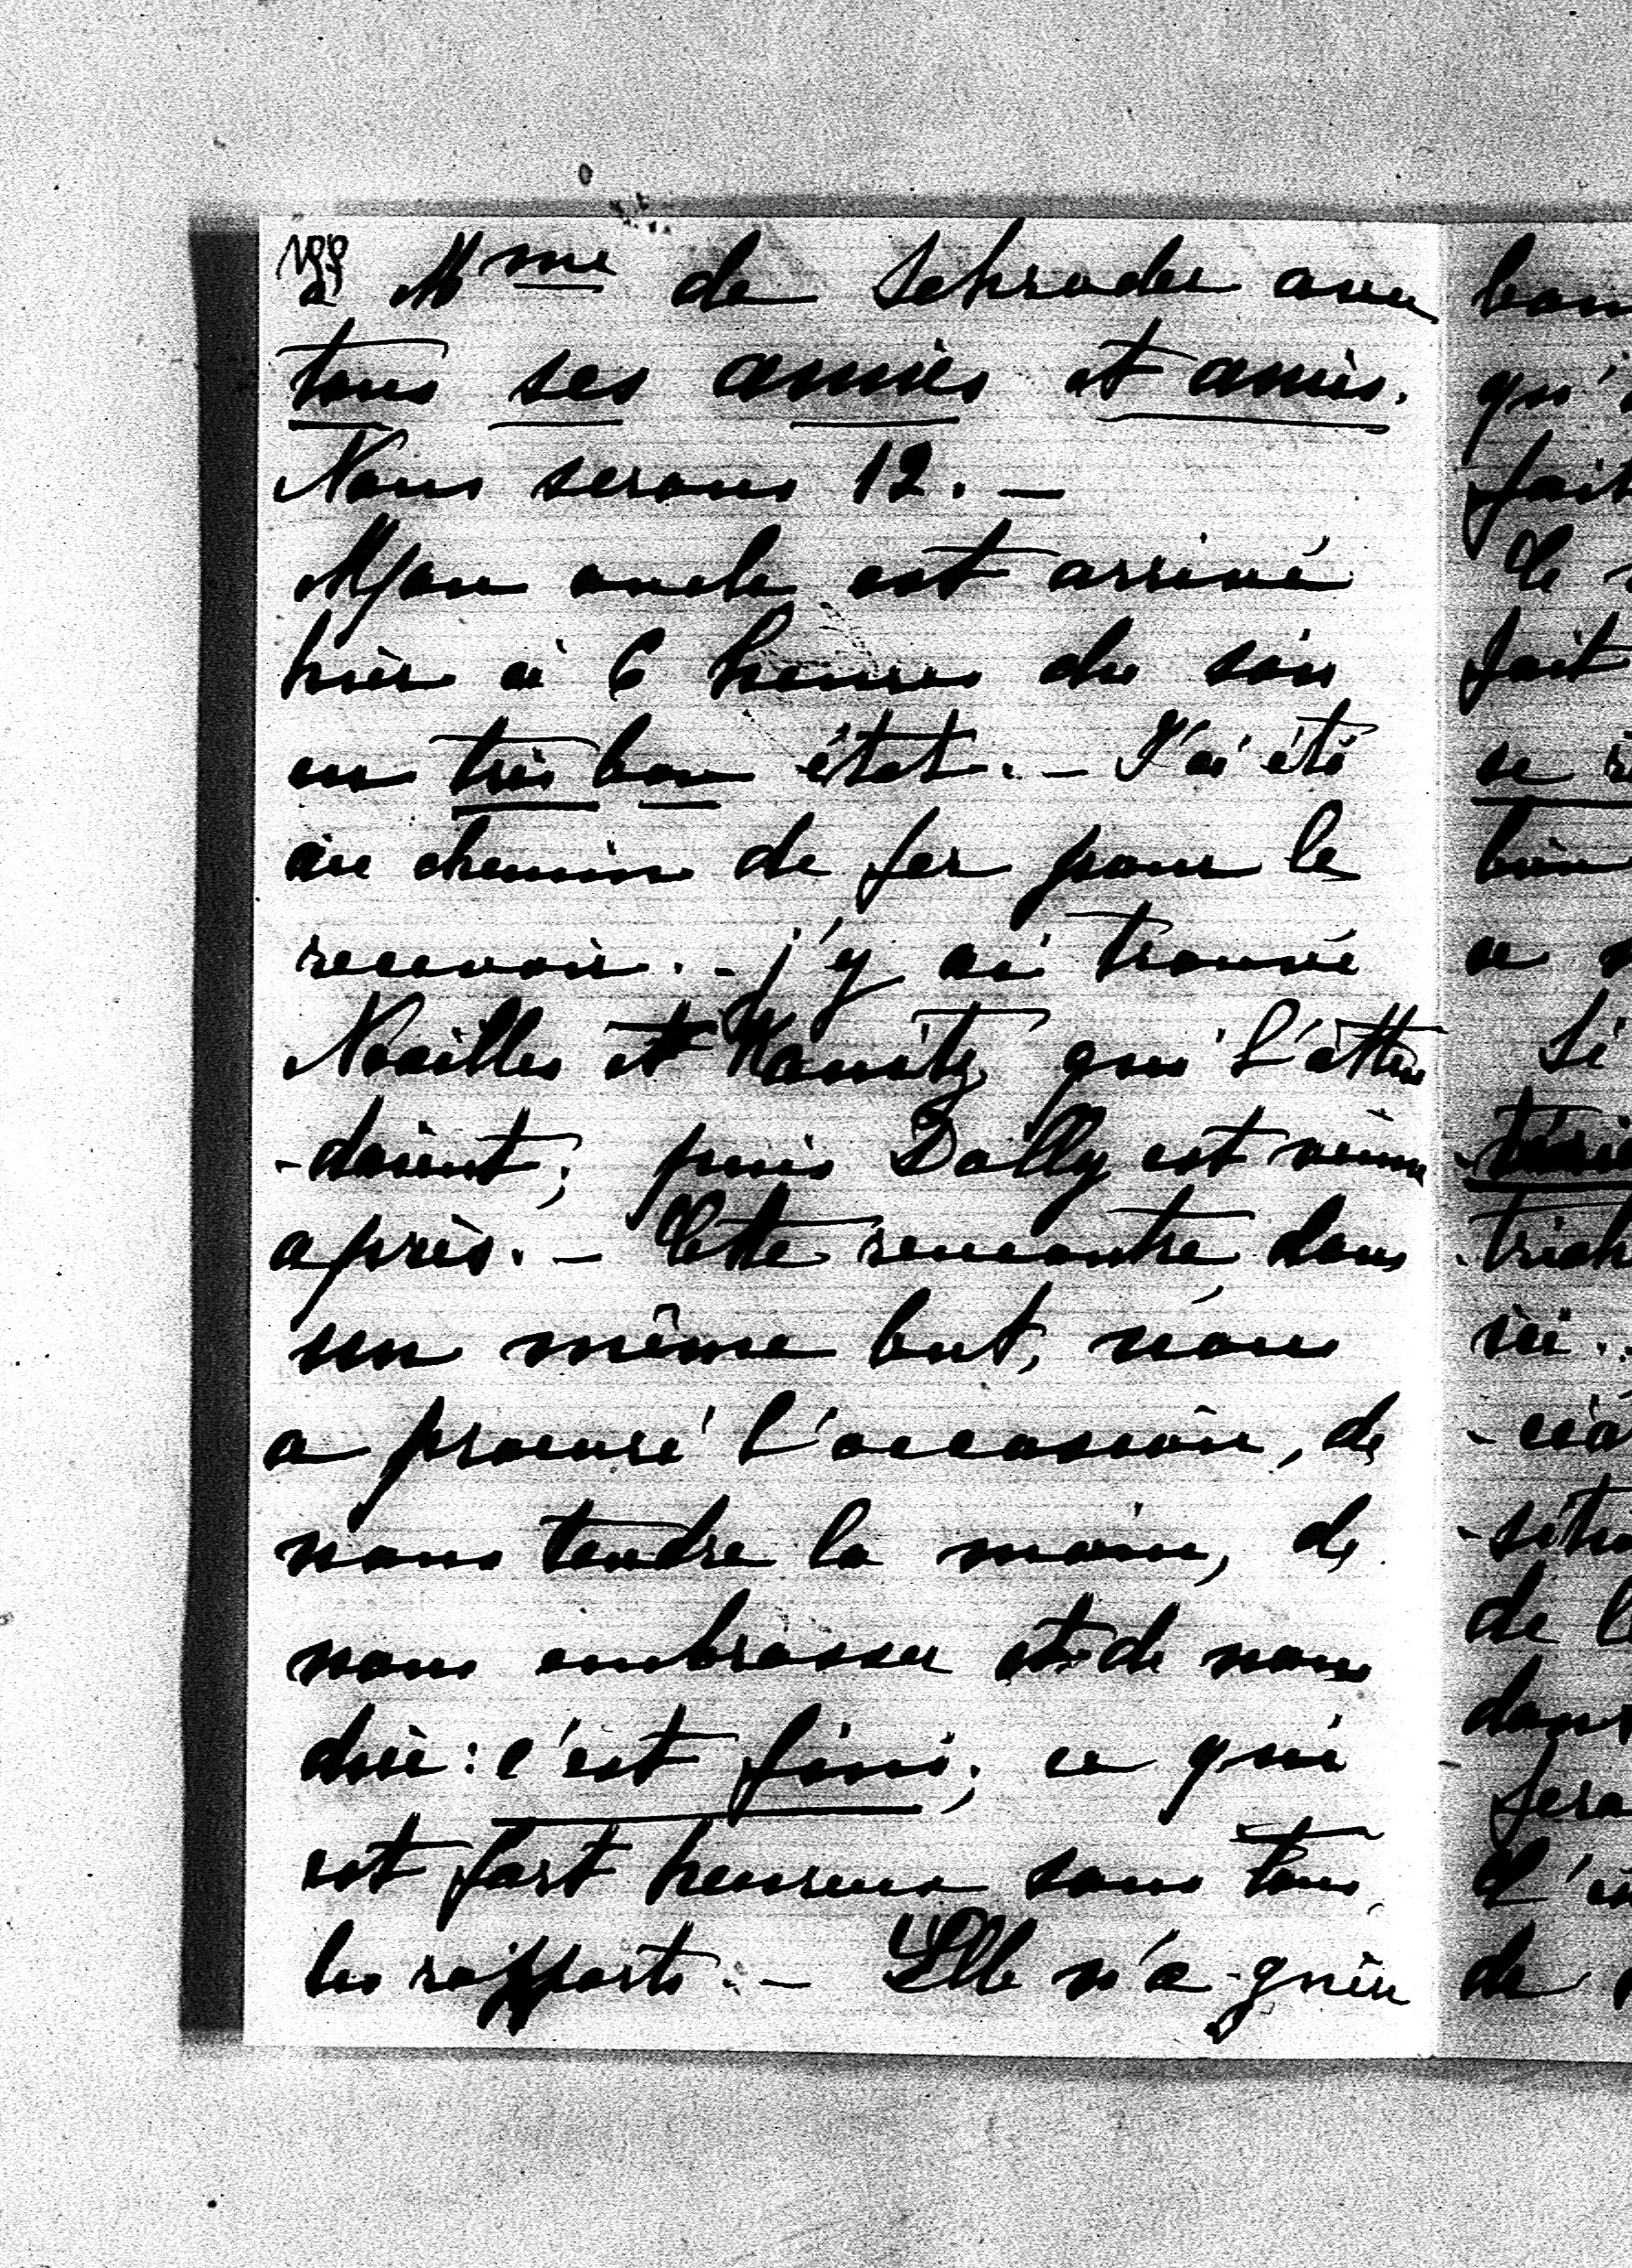 à Mme de Schrader avec
tous ses amies et amis.
Nous serons 12. —
Mon oncle est arrivé
hier à 6 heures du soir
en très bon état. — J'ai été
au chemin de fer pour le
recevoir. — j'y ai trouvé
Noailles et Kanitz qui l'atten
-daient; puis Dolly est venue
après. — Cette rencontre dans
un même but, nous
a procuré l'occasion, de
nous tendre la main, de
nous embrasser et de nous
dire: c'est fini; ce qui
est fort heureux sous tous
les rapports. — Elle n'a guère
qu'
fait
fait
de